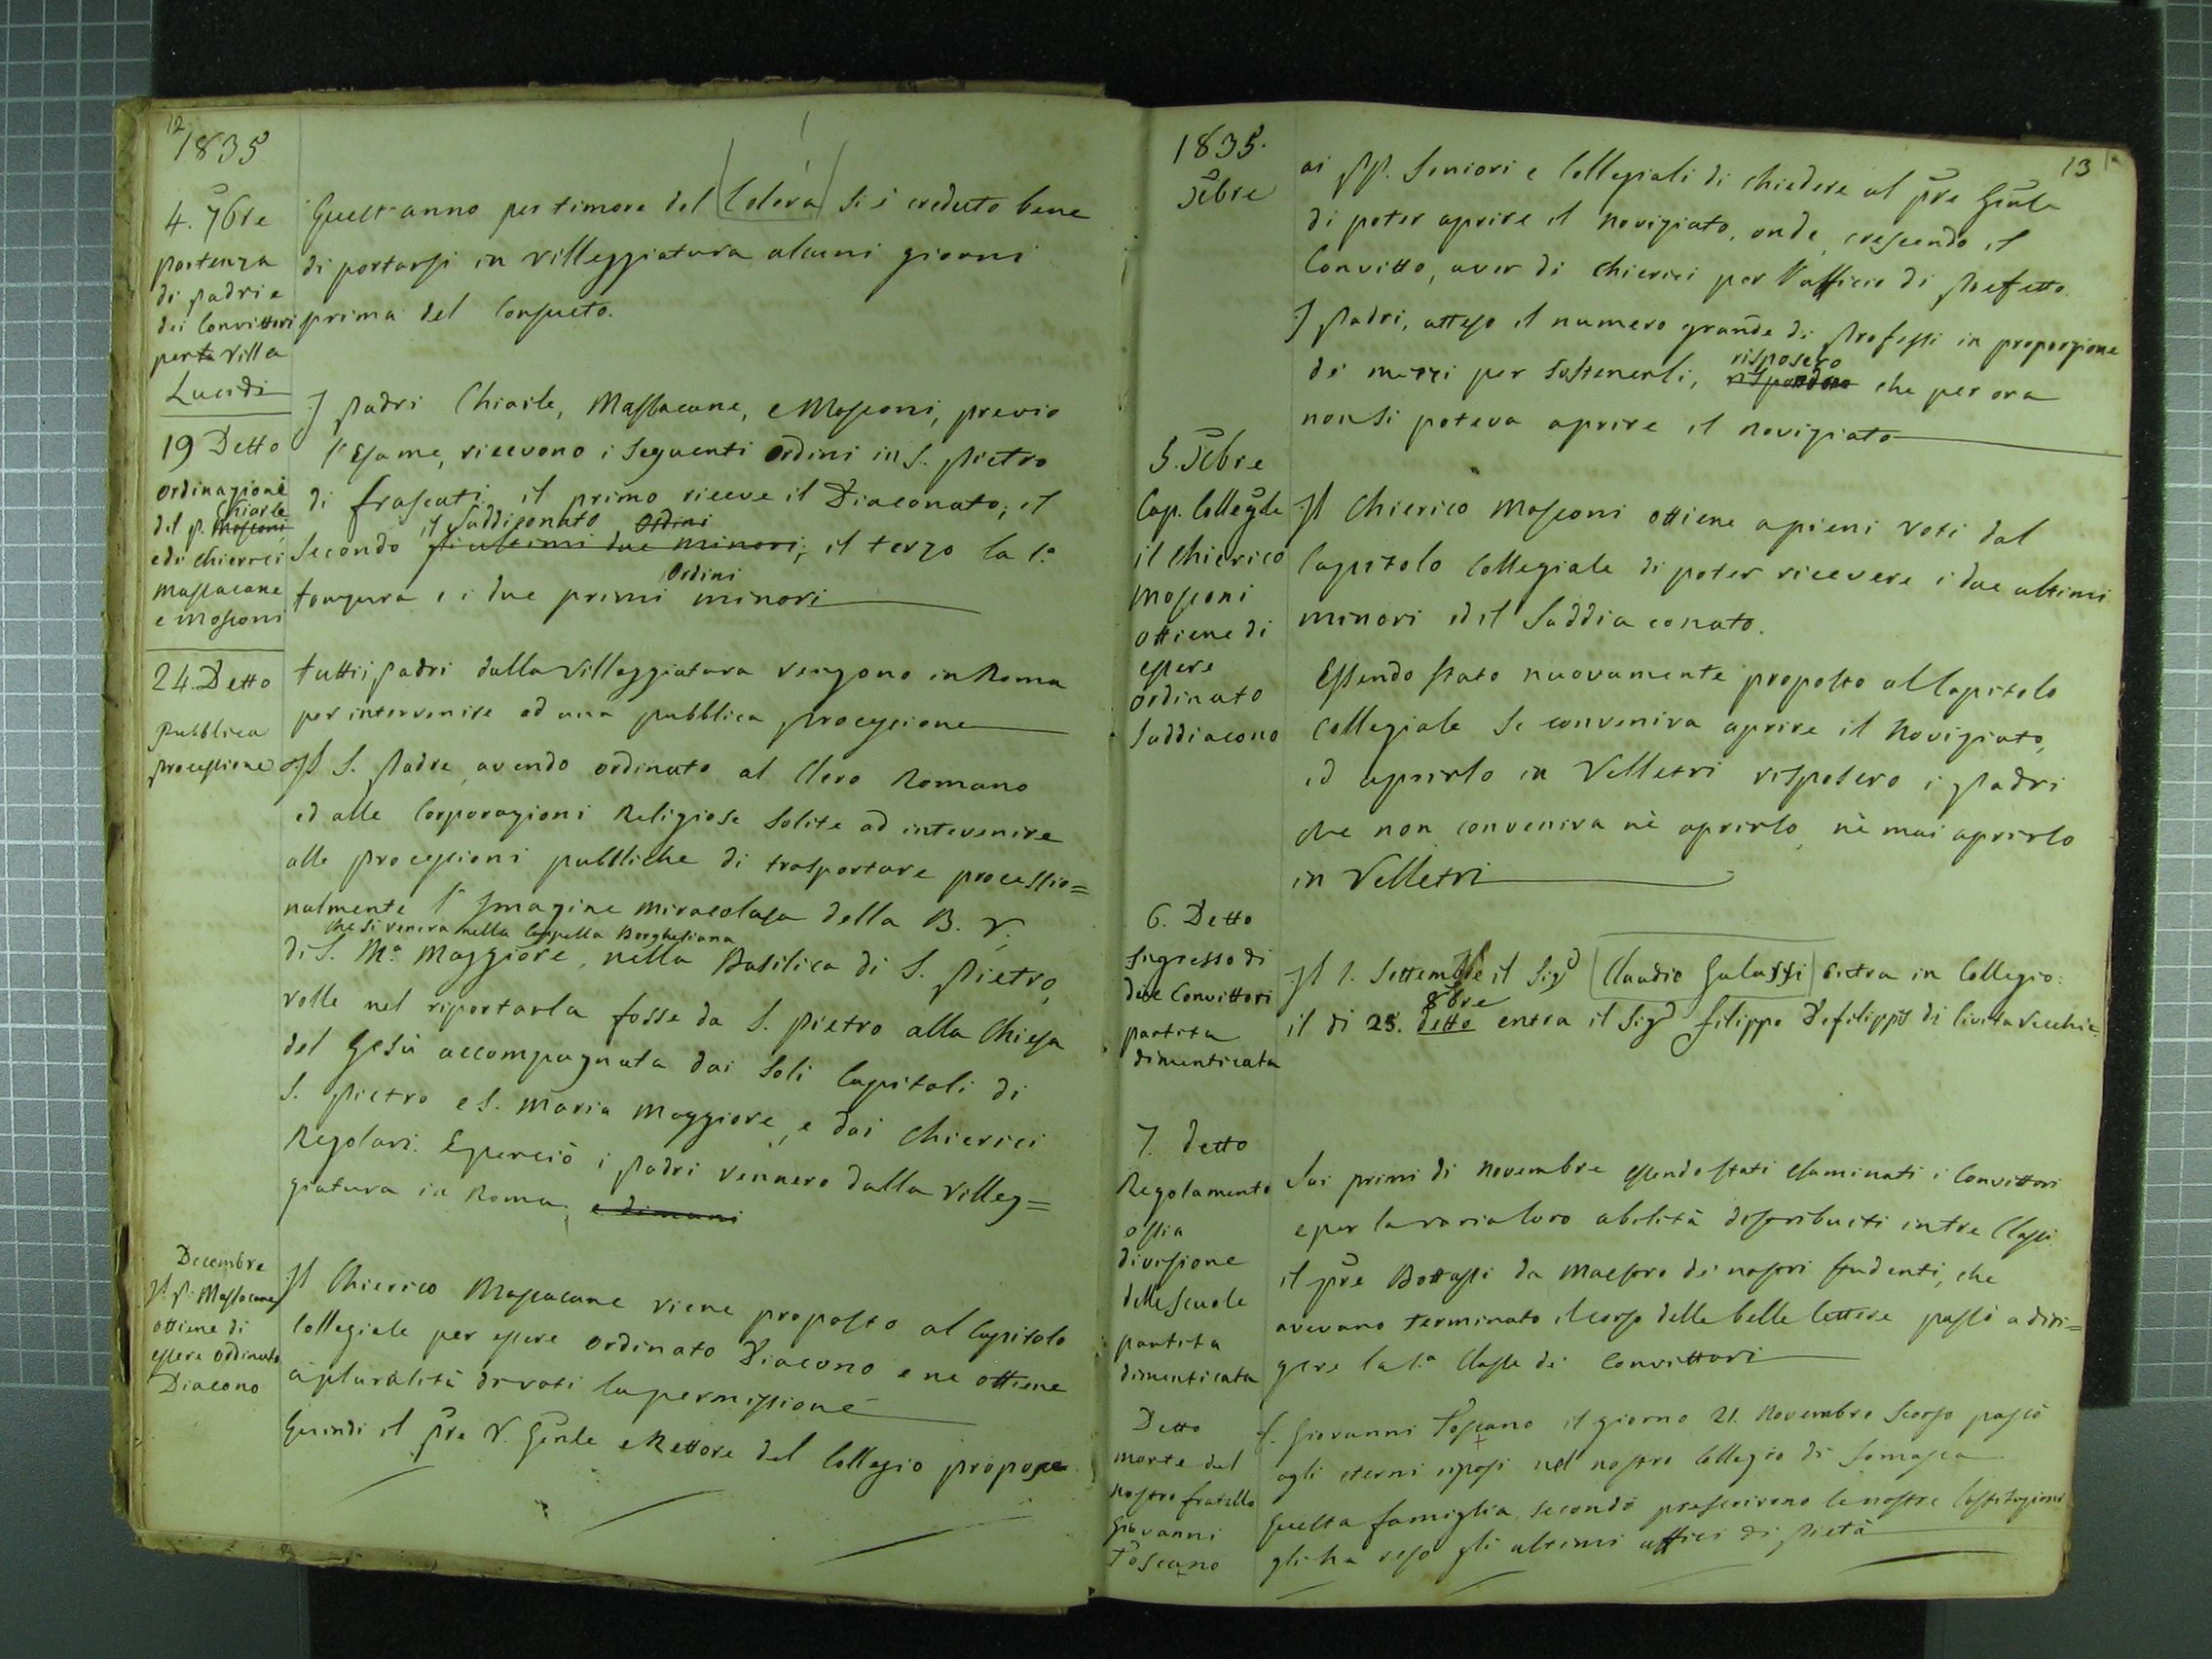 12
1835
4. 7bre
partenza
di Padri e
dei Convittori
per la Villa
Lucidi
Quest'anno per timore del Colera si è creduto bene
di portarsi in villeggiatura alcuni giorni
prima del consueto.
19 Detto
ordinazione
del P. Mosconi Chiarle
e di chierici
Massacane
e Mosconi
I Padri Chiarle, Massacane, e Mosconi, previo
l'Esame, ricevono i seguenti ordini in S. Pietro
di Frascati il primo riceve il Diaconato; il
il Suddiaconato Ordini
secondo gli ultimi due minori; il terzo la 1.a
Ordini
tonzura e i due primi minori
24. Detto
Pubblica
Processione
tutti i Padri dalla Villeggiatura vengono in Roma
per intervenire ad una pubblica processione
Il S. Padre, avendo ordinato al Clero Romano
ed alle Corporazioni Religiose solite ad intevenire
alle processioni pubbliche di trasportare processio=
nalmente l'Imagine miracolosa della B. V.
che si venera nella Cappella Borghesiana
di S. M.a Maggiore, nella Basilica di S. Pietro,
volle nel riportarla fosse da S. Pietro alla Chiesa
del Gesù accompagnata dai soli Capitoli di
S. Pietro e S. Maria Maggiore, e dai Chierici
Regolari. E perciò i Padri vennero dalla Villeg=
giatura in Roma, e dimani
Decembre
Il P. Massacane
ottiene di
essere ordinato
Diacono
Il Chierico Massacane viene proposto al Capitolo
Collegiale per essere ordinato Diacono e ne ottiene
a pluralità di voti la permissione
Quindi il Pre V. Gēnle e Rettore del Collegio propose
13
1835.
Xbre
ai PP. Seniori e Collegiali di chiedere al Pre Gēnle
di poter aprire il Noviziato, onde, crescendo il
Convitto, aver di chierici per l'ufficio di Prefetto.
I Padri, atteso il numero grande di Professi in proporzione
risposero
de mezzi per sostenerli, rispondono che per ora
non si poteva aprire il Noviziato
5. Xbre
Cap. Collegle
il Chierico
Mosconi
ottiene di
essere
ordinato
Suddiacono
Il Chierico Mosconi ottiene a pieni voti dal
Capitolo Collegiale di poter ricevere i due ultimi
minori ed il Suddiaconato.
Essendo stato nuovamente proposto al Capitolo
Collegiale se conveniva aprire il Novigiato,
ed aprirlo in Velletri risposero i Padri
che non conveniva nè aprirlo, nè mai aprirlo
in Velletri
6. Detto
Ingresso di
due Convittori
partita
dimenticata
Il 1. Settembre il Sigr Claudio Galassi entra in Collegio.
8bre
il di 25. detto entra il Sigr Filippo Defilippis di Civita Vecchia
7. detto
Regolamento
ossia
divisione
delle Scuole
partita
dimenticata
Sui primi di Novembre essendo stati esaminati i Convittori
e per la varia loro abilità distribuiti in tre Classi
il Pre Bottassi da Maestro de' nostri studenti, che
avevano terminato il corso delle belle lettere passò a diri=
gere la 1.a Classe de' Convittori
Detto
morte del
nostro fratello
Giovanni
Toscano
F. Giovanni Toscano il giorno 21. Novembre scorso passò
agli eterni riposi nel nostro Collegio di Somasca
Questa famiglia, secondo prescrivono le nostre Costituzioni
gli ha reso gli ultimi uffici di Pietà